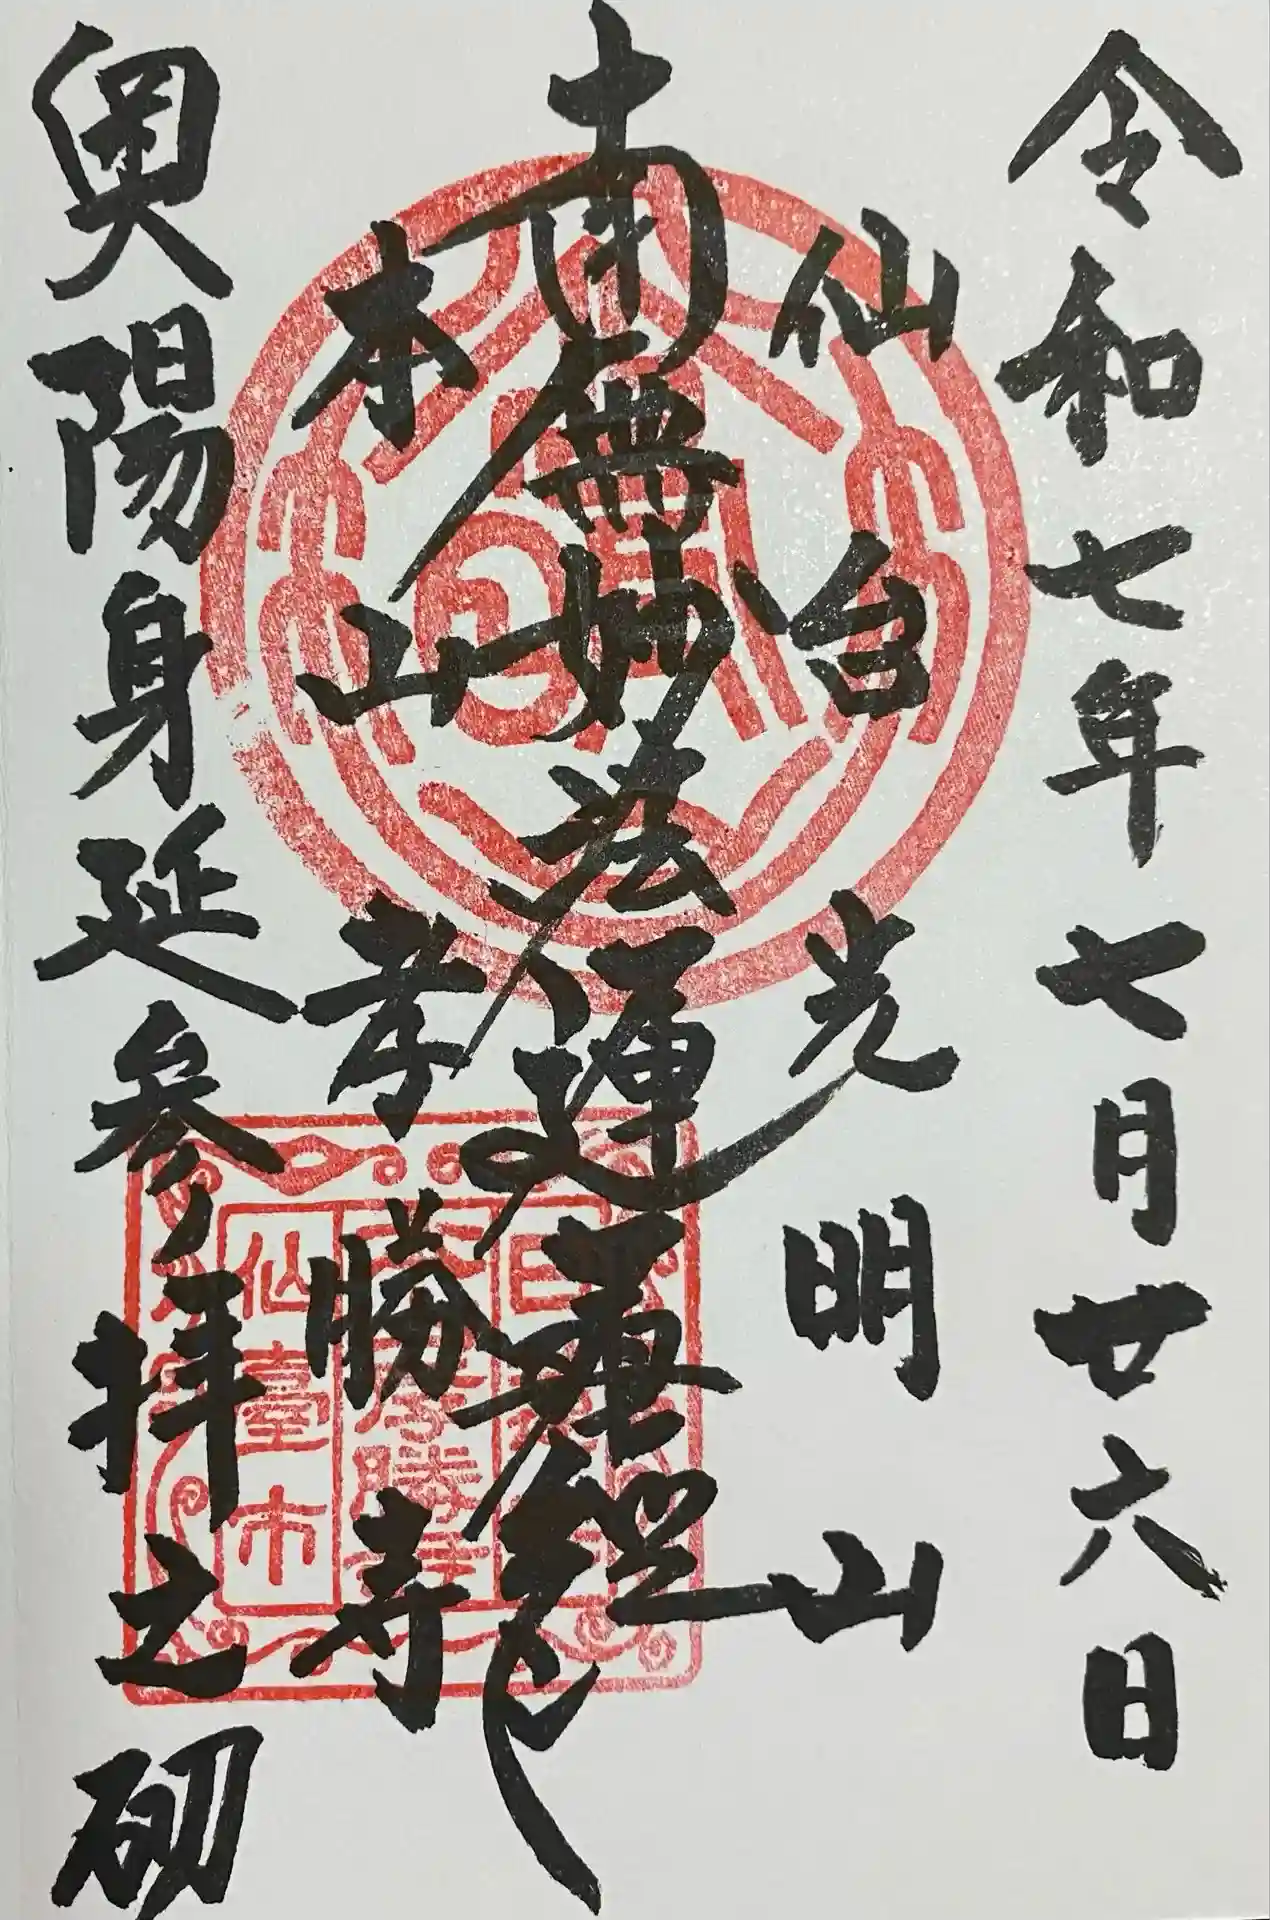 令和七年七月廿六日
仙台光明山
南無妙法蓮華経
本山孝勝寺
奥陽身延参拝之砌
仙臺市